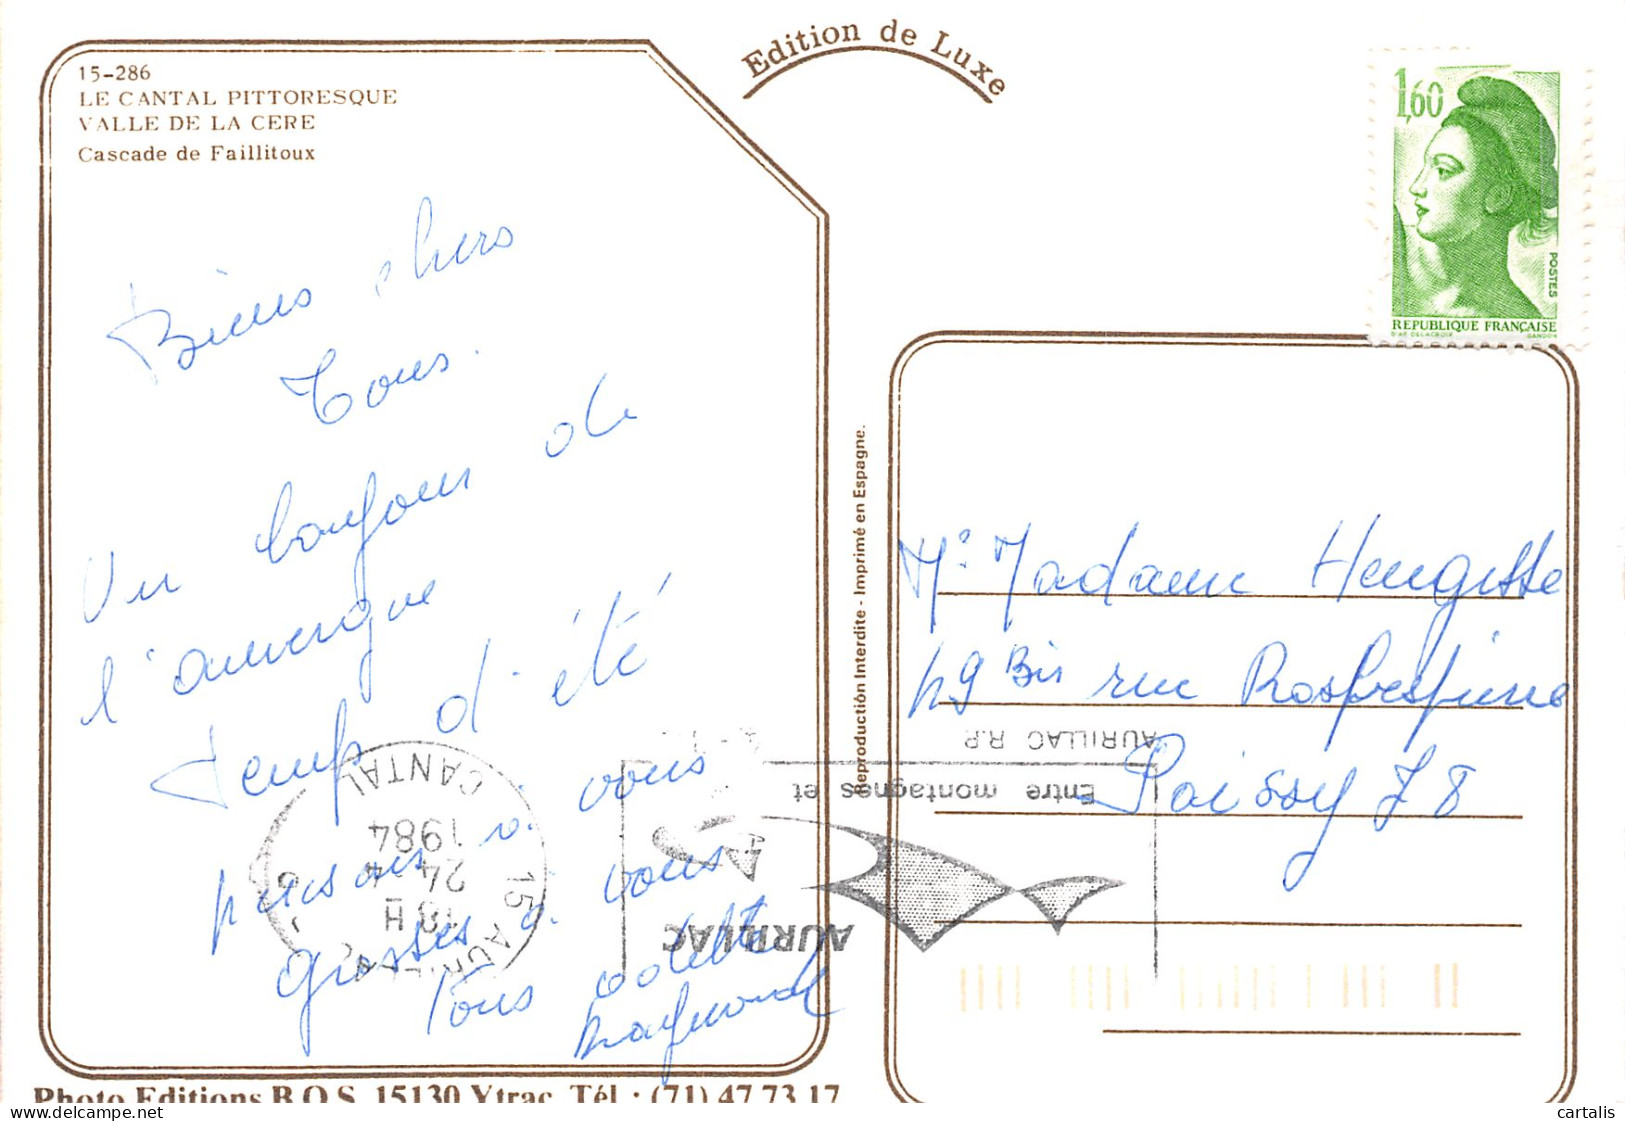 15-286
LE CANTAL PITTORESQUE
VALLE DE LA CERE
Cascade de Faillitoux
Edition de Luxe
1,60
POSTES
REPUBLIQUE FRANÇAISE
D'AP. DELACROIX GANDON
Biens chers
Tous.
Un bonjour de
l'auvergne
Temps d'été
pensons à vous
grosses à vous
Tous odette
Raymond
Reproduction Interdite - Imprimé en Espagne.
Mr Madame
49 Bis rue Rospespierre
Poissy 78
AURILLAC R.P.
Entre montagnes et
AURILLAC
15 AURILLAC
18 H
24 - 4
1984
CANTAL
Photo Editions B.O.S. 15130 Ytrac Tél : (71) 47 73 17
cartalis